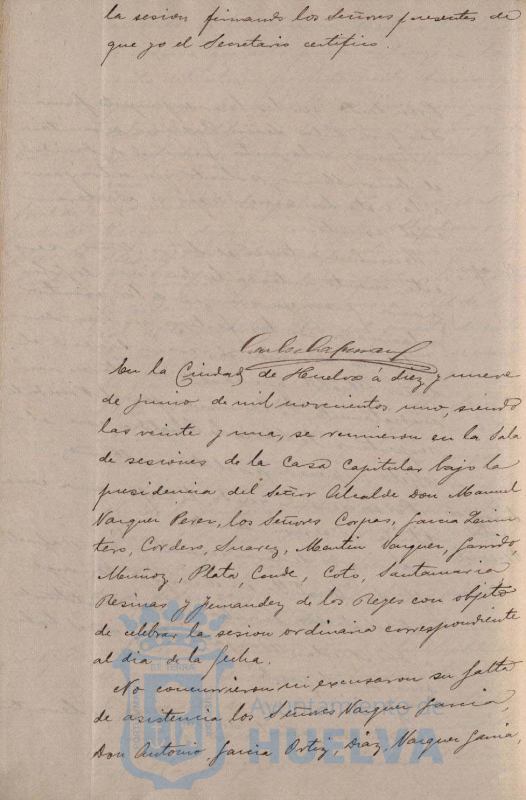 la sesion firmando los Señores presentes de
que yo el Secretario certifico.
En la Ciudad de Huelva á diez y nueve
de Junio de mil novecientos uno, siendo
las veinte y una, se reunieron en la Sala
de sesiones de la Casa Capitular bajo la
presidencia del Señor Alcalde Don Manuel
Vazquez Perez, los Señores Corpas, Garcia Quin-
tero, Cordero, Suarez, Martin Vazquez, Garrido,
Muñoz, Plata, Conde, Coto, Santamaria
Resinas y Fernandez de los Reyes con objeto
de celebrar la sesion ordinaria correspondiente
al dia de la fecha.
No concurrieron ni excusaron su falta
de asistencia los Señores Vazquez Garcia,
Don Antonio, Garcia Ortiz, Diaz, Vazquez Garcia,
Ayuntamiento de
HUELVA